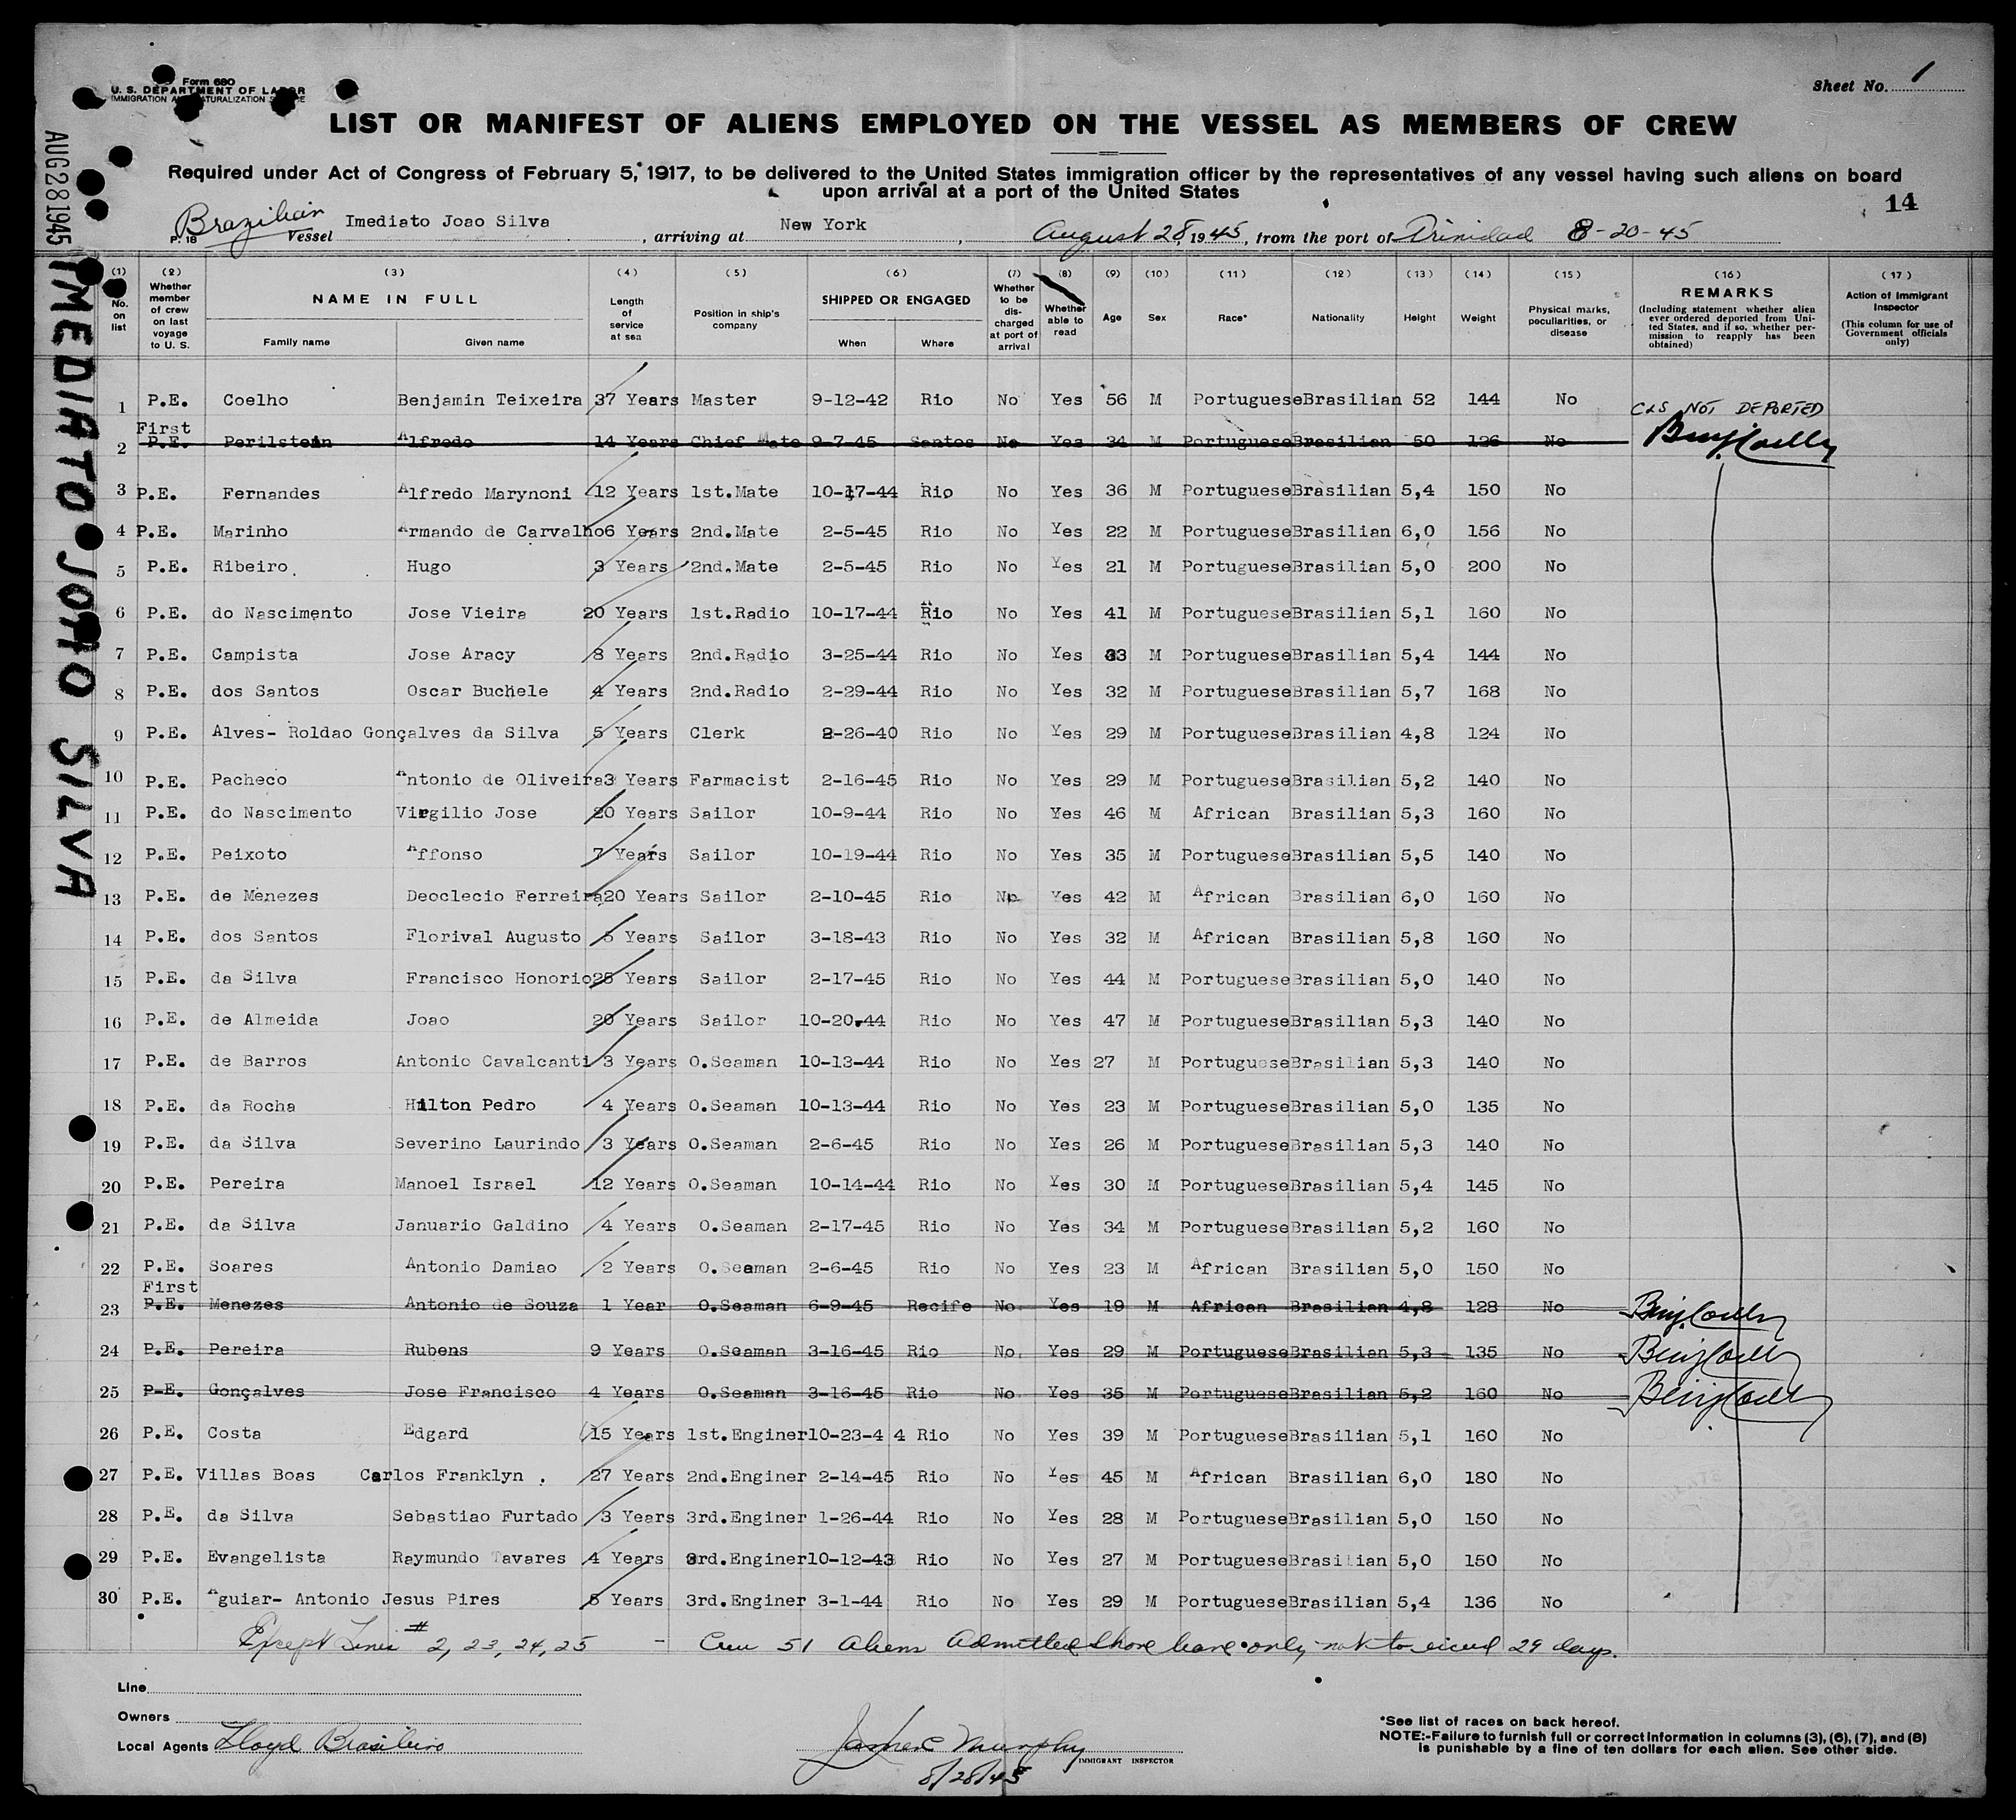 Form 680
U. S. DEPARTMENT OF LABOR
IMMIGRATION AND NATURALIZATION SERVICE
Sheet No. 1
LIST OR MANIFEST OF ALIENS EMPLOYED ON THE VESSEL AS MEMBERS OF CREW
Required under Act of Congress of February 5, 1917, to be delivered to the United States immigration officer by the representatives of any vessel having such aliens on board
upon arrival at a port of the United States
14
AUG 28 1945
IMEDIATO JOAO SILVA
Brazilian Vessel Imediato Joao Silva, arriving at New York, August 28, 1945, from the port of Trinidad 8-20-45
P. 18
(1) (2) (3) (4) (5) (6) (7) (8) (9) (10) (11) (12) (13) (14) (15) (16) (17)
No. on list
Whether member of crew on last voyage to U. S.
NAME IN FULL
Family name Given name
Length of service at sea
Position in ship's company
SHIPPED OR ENGAGED
When Where
Whether to be discharged at port of arrival
Whether able to read
Age
Sex
Race*
Nationality
Height
Weight
Physical marks, peculiarities, or disease
REMARKS
(Including statement whether alien ever ordered deported from United States, and if so, whether permission to reapply has been obtained)
Action of Immigrant Inspector
(This column for use of Government officials only)
1 P.E. Coelho Benjamin Teixeira 37 Years Master 9-12-42 Rio No Yes 56 M Portuguese Brasilian 52 144 No
C&S NOT DEPORTED
First
2 P.E. Perilstein Alfredo 14 Years Chief Mate 9-7-45 Santos No Yes 34 M Portuguese Brasilian 50 126 No
3 P.E. Fernandes Alfredo Marynoni 12 Years 1st.Mate 10-17-44 Rio No Yes 36 M Portuguese Brasilian 5,4 150 No
4 P.E. Marinho Armando de Carvalho 6 Years 2nd.Mate 2-5-45 Rio No Yes 22 M Portuguese Brasilian 6,0 156 No
5 P.E. Ribeiro Hugo 3 Years 2nd.Mate 2-5-45 Rio No Yes 21 M Portuguese Brasilian 5,0 200 No
6 P.E. do Nascimento Jose Vieira 20 Years 1st.Radio 10-17-44 Rio No Yes 41 M Portuguese Brasilian 5,1 160 No
7 P.E. Campista Jose Aracy 8 Years 2nd.Radio 3-25-44 Rio No Yes 33 M Portuguese Brasilian 5,4 144 No
8 P.E. dos Santos Oscar Buchele 4 Years 2nd.Radio 2-29-44 Rio No Yes 32 M Portuguese Brasilian 5,7 168 No
9 P.E. Alves- Roldao Gonçalves da Silva 5 Years Clerk 2-26-40 Rio No Yes 29 M Portuguese Brasilian 4,8 124 No
10 P.E. Pacheco Antonio de Oliveira 3 Years Farmacist 2-16-45 Rio No Yes 29 M Portuguese Brasilian 5,2 140 No
11 P.E. do Nascimento Virgilio Jose 20 Years Sailor 10-9-44 Rio No Yes 46 M African Brasilian 5,3 160 No
12 P.E. Peixoto Affonso 7 Years Sailor 10-19-44 Rio No Yes 35 M Portuguese Brasilian 5,5 140 No
13 P.E. de Menezes Deoclecio Ferreira 20 Years Sailor 2-10-45 Rio No Yes 42 M African Brasilian 6,0 160 No
14 P.E. dos Santos Florival Augusto 5 Years Sailor 3-18-43 Rio No Yes 32 M African Brasilian 5,8 160 No
15 P.E. da Silva Francisco Honorio 25 Years Sailor 2-17-45 Rio No Yes 44 M Portuguese Brasilian 5,0 140 No
16 P.E. de Almeida Joao 20 Years Sailor 10-20-44 Rio No Yes 47 M Portuguese Brasilian 5,3 140 No
17 P.E. de Barros Antonio Cavalcanti 3 Years O.Seaman 10-13-44 Rio No Yes 27 M Portuguese Brasilian 5,3 140 No
18 P.E. da Rocha Hilton Pedro 4 Years O.Seaman 10-13-44 Rio No Yes 23 M Portuguese Brasilian 5,0 135 No
19 P.E. da Silva Severino Laurindo 3 Years O.Seaman 2-6-45 Rio No Yes 26 M Portuguese Brasilian 5,3 140 No
20 P.E. Pereira Manoel Israel 12 Years O.Seaman 10-14-44 Rio No Yes 30 M Portuguese Brasilian 5,4 145 No
21 P.E. da Silva Januario Galdino 4 Years O.Seaman 2-17-45 Rio No Yes 34 M Portuguese Brasilian 5,2 160 No
22 P.E. Soares Antonio Damiao 2 Years O.Seaman 2-6-45 Rio No Yes 23 M African Brasilian 5,0 150 No
First
23 P.E. Menezes Antonio de Souza 1 Year O.Seaman 6-9-45 Recife No Yes 19 M African Brasilian 4,8 128 No
24 P.E. Pereira Rubens 9 Years O.Seaman 3-16-45 Rio No Yes 29 M Portuguese Brasilian 5,3 135 No
25 P.E. Gonçalves Jose Francisco 4 Years O.Seaman 3-16-45 Rio No Yes 35 M Portuguese Brasilian 5,2 160 No
26 P.E. Costa Edgard 15 Years 1st.Enginer 10-23-4 4 Rio No Yes 39 M Portuguese Brasilian 5,1 160 No
27 P.E. Villas Boas Carlos Franklyn . 27 Years 2nd.Enginer 2-14-45 Rio No Yes 45 M African Brasilian 6,0 180 No
28 P.E. da Silva Sebastiao Furtado 3 Years 3rd.Enginer 1-26-44 Rio No Yes 28 M Portuguese Brasilian 5,0 150 No
29 P.E. Evangelista Raymundo Tavares 4 Years 3rd.Enginer 10-12-43 Rio No Yes 27 M Portuguese Brasilian 5,0 150 No
30 P.E. Aguiar- Antonio Jesus Pires 5 Years 3rd.Enginer 3-1-44 Rio No Yes 29 M Portuguese Brasilian 5,4 136 No
Except Lines # 2, 23, 24, 25 - Crew 51 Aliens Admitted shore leave only, not to exceed 29 days.
Line
Owners
Local Agents Lloyd Brasileiro
James Murphy
IMMIGRANT INSPECTOR
8/28/45
*See list of races on back hereof.
NOTE:-Failure to furnish full or correct information in columns (3), (6), (7), and (8)
is punishable by a fine of ten dollars for each alien. See other side.